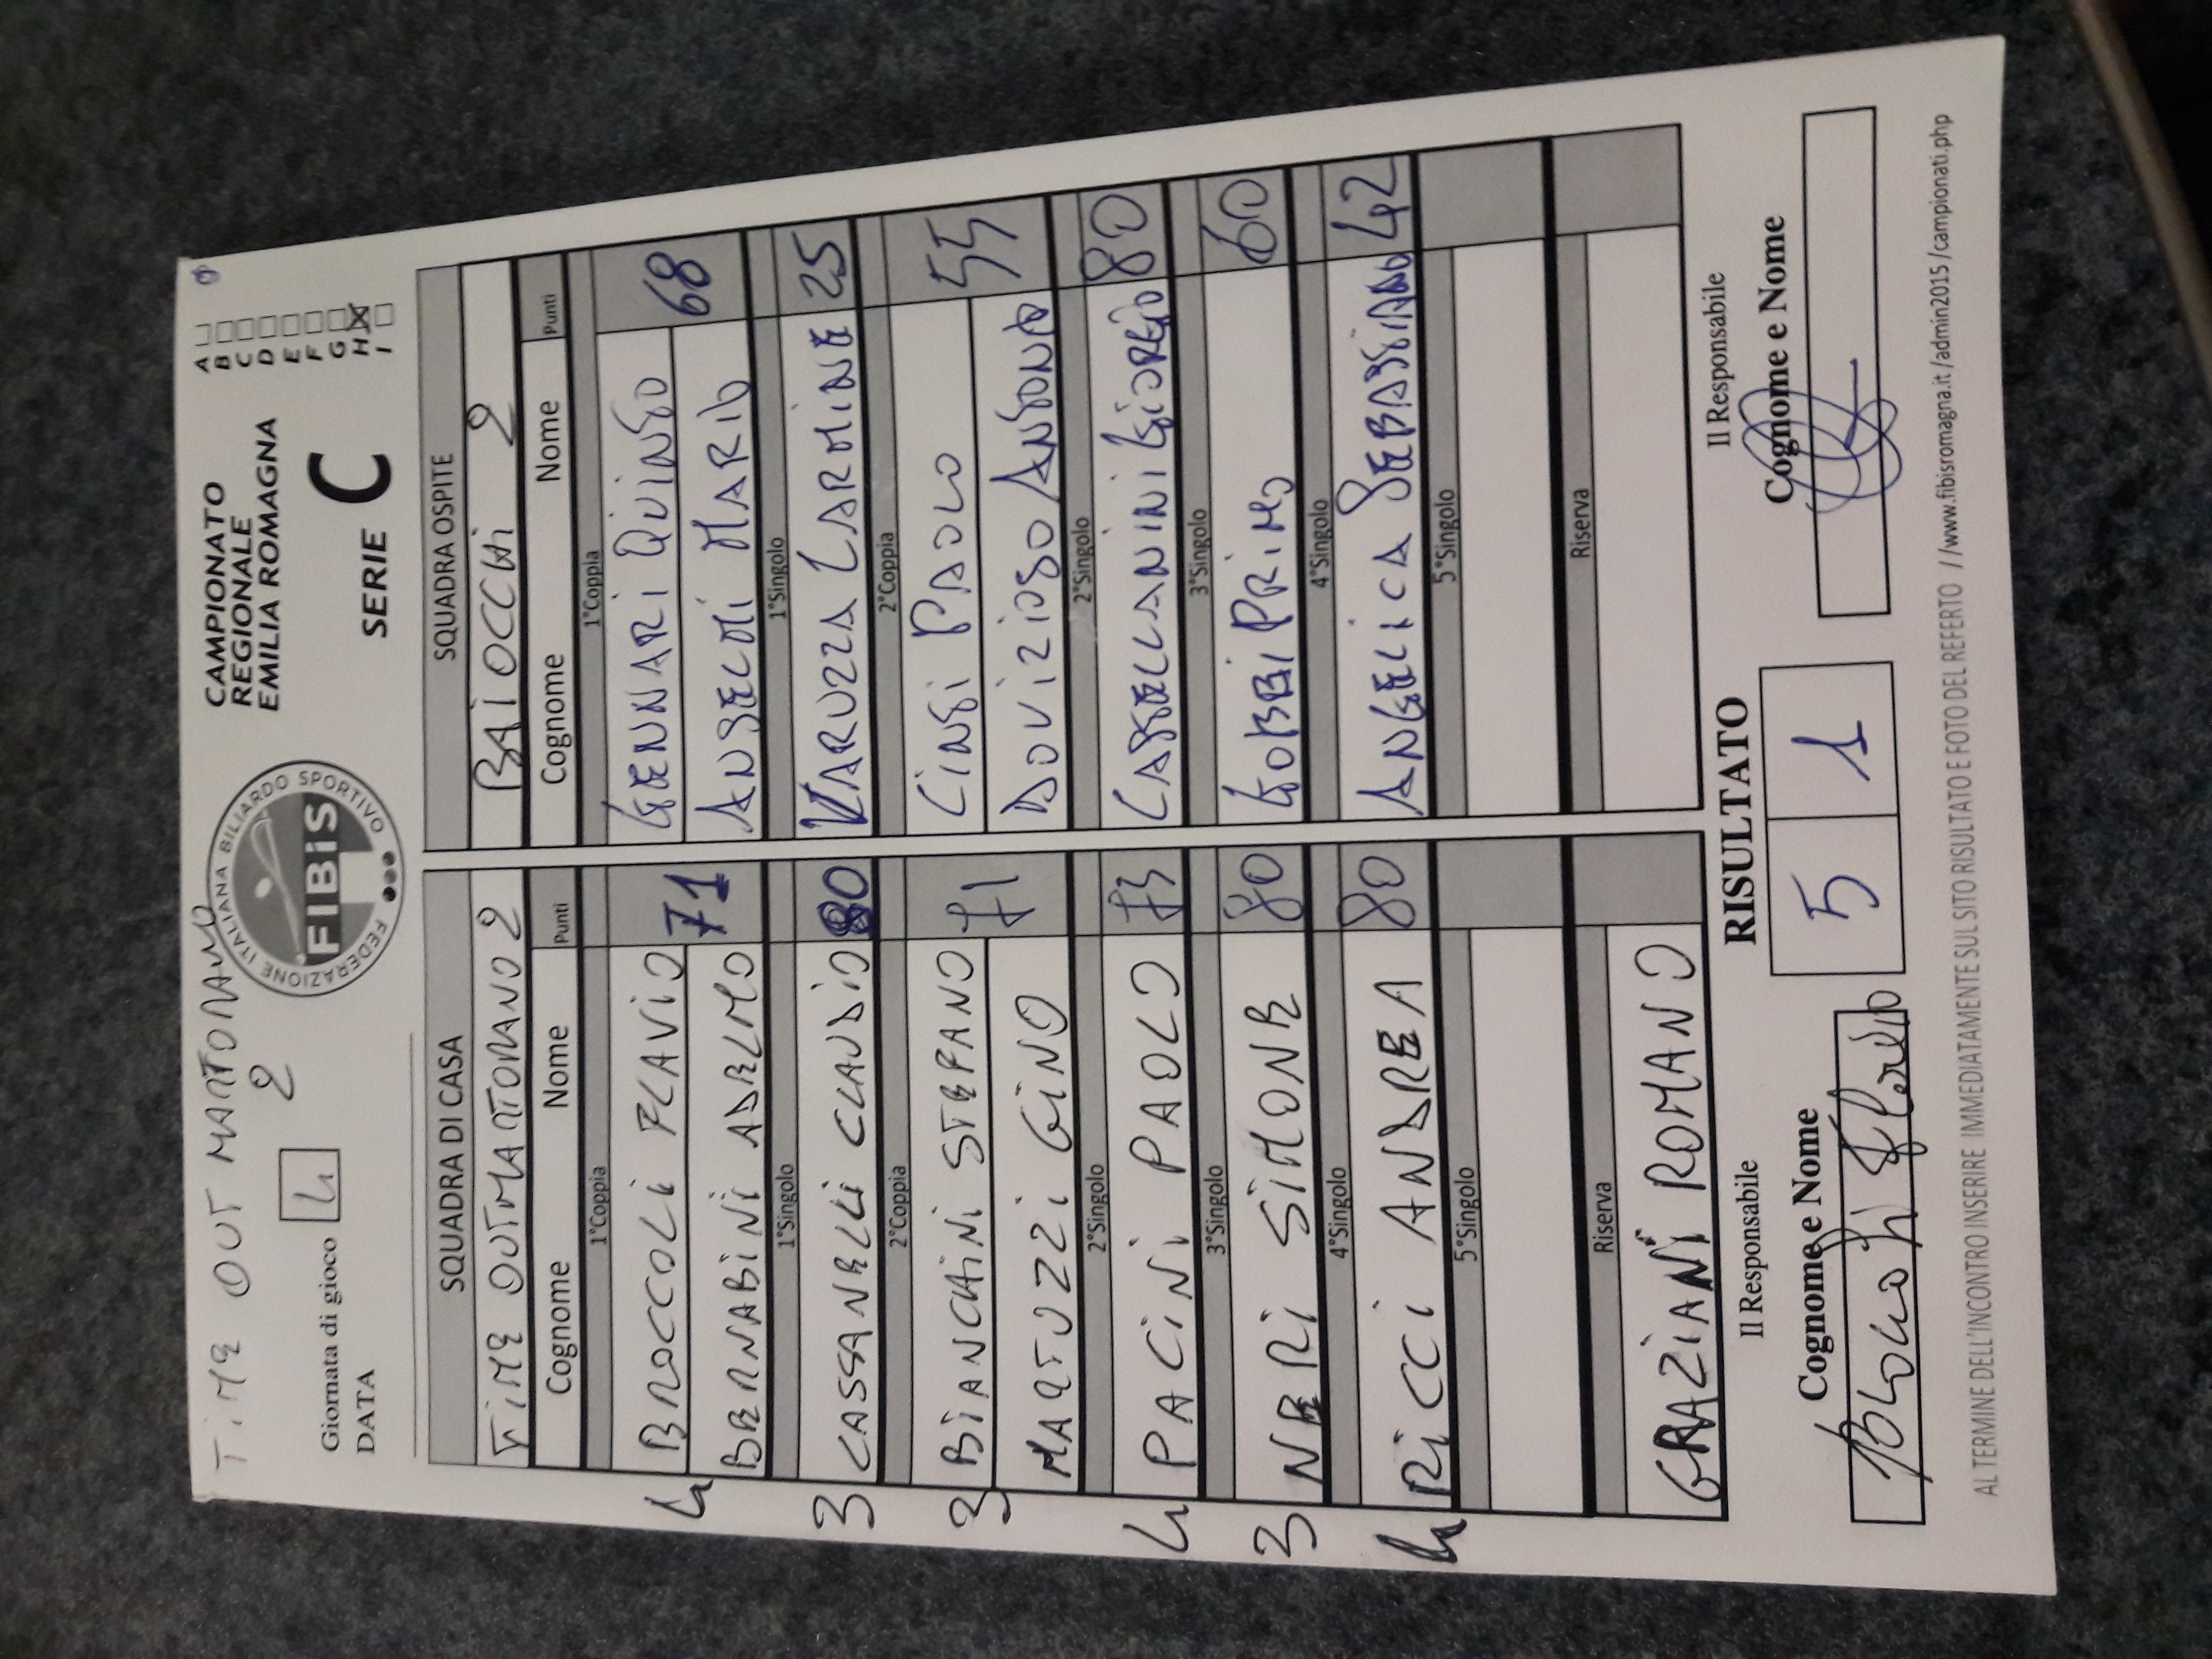 TIME OUT MARTORANO
2
Giornata di gioco 4
DATA
FEDERAZIONE ITALIANA BILIARDO SPORTIVO
FIBiS
CAMPIONATO
REGIONALE
EMILIA ROMAGNA
SERIE C
A
B
C
D
E
F
G
H X
I
SQUADRA DI CASA
TIME OUT MARTORANO 2
Cognome Nome Punti
1°Coppia
4 BROCCOLI FLAVIO 71
BERNABINI ADELMO
1°Singolo
3 CASSANELLI CLAUDIO 80
2°Coppia
3 BIANCHINI STEFANO 71
MARTUZZI GINO
2°Singolo
4 PACINI PAOLO 73
3°Singolo
3 NERI SIMONE 80
4°Singolo
4 RICCI ANDREA 80
5°Singolo
Riserva
GRAZIANI ROMANO
SQUADRA OSPITE
BAIOCCHI 2
Cognome Nome Punti
1°Coppia
GENNARI QUINTO 68
ANSELMI MARIO
1°Singolo
VARUZZA CAROLINE 25
2°Coppia
CINTI PAOLO 55
DOVIZIOSO ANTONIO
2°Singolo
CASTELLANINI GIORGIO 80
3°Singolo
GOBBI PRIMO 60
4°Singolo
ANGELICA SEBASTIANO 42
5°Singolo
Riserva
Il Responsabile
Cognome e Nome
RISULTATO
5 1
Il Responsabile
Cognome e Nome
AL TERMINE DELL'INCONTRO INSERIRE IMMEDIATAMENTE SUL SITO RISULTATO E FOTO DEL REFERTO //www.fibisromagna.it/admin2015/campionati.php